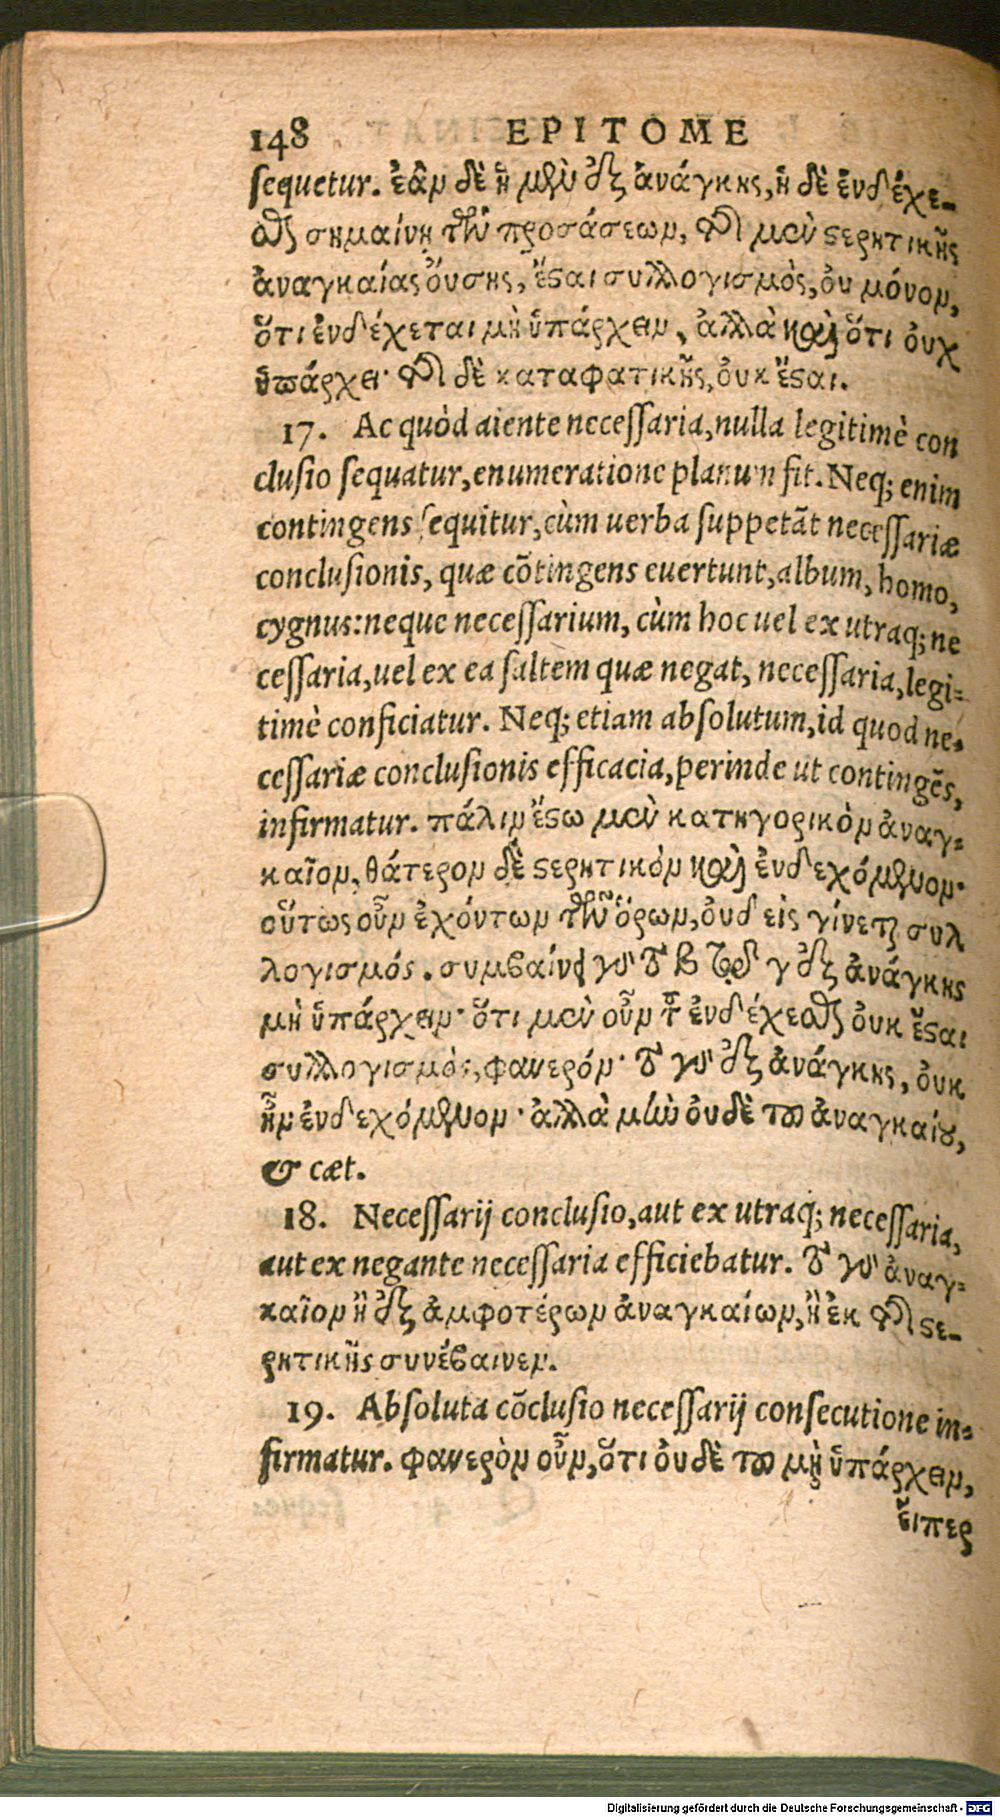 148 EPITOME
sequetur. ἐὰν δὲ ἢ μὲν ἐξ ἀνάγκης, ἢ δὲ ἐνδέχε-
σθαι σημαίνῃ τῶν προτάσεων, τῆς μὲν στερητικῆς
ἀναγκαίας οὔσης, ἔσται συλλογισμὸς, οὐ μόνον,
ὅτι ἐνδέχεται μὴ ὑπάρχειν, ἀλλὰ καὶ ὅτι οὐχ
ὑπάρχει· τῆς δὲ καταφατικῆς, οὐκ ἔσται.
17. Ac quòd aiente necessaria, nulla legitimè con
clusio sequatur, enumeratione planum fit. Neq; enim
contingens sequitur, cùm uerba suppetãt necessariæ
conclusionis, quæ cõtingens euertunt, album, homo,
cygnus: neque necessarium, cùm hoc uel ex utraq; ne
cessaria, uel ex ea saltem quæ negat, necessaria, legi-
timè conficiatur. Neq; etiam absolutum, id quod ne-
cessariæ conclusionis efficacia, perinde ut contingẽs,
infirmatur. πάλιν ἔστω μὲν κατηγορικὸν ἀναγ-
καῖον, θάτερον δὲ στερητικὸν καὶ ἐνδεχόμενον·
οὕτως οὖν ἐχόντων τῶν ὅρων, οὐδ εἰς γίνεται συλ
λογισμός. συμβαίνει γὰρ τὸ β τῷ γ ἐξ ἀνάγκης
μὴ ὑπάρχειν· ὅτι μὲν οὖν τοῦ ἐνδέχεσθαι οὐκ ἔσται
συλλογισμὸς, φανερόν· τὸ γὰρ ἐξ ἀνάγκης, οὐκ
ἦν ἐνδεχόμενον· ἀλλὰ μὴν οὐδὲ τοῦ ἀναγκαίου,
& cæt.
18. Necessarij conclusio, aut ex utraq; necessaria,
aut ex negante necessaria efficiebatur. τὸ γὰρ ἀναγ-
καῖον ἢ ἐξ ἀμφοτέρων ἀναγκαίων, ἢ ἐκ τῆς στε-
ρητικῆς συνέβαινεν.
19. Absoluta cõclusio necessarij consecutione in-
firmatur. φανερὸν οὖν, ὅτι οὐδὲ τοῦ μὴ ὑπάρχειν,
εἴπερ
Digitalisierung gefördert durch die Deutsche Forschungsgemeinschaft - DFG